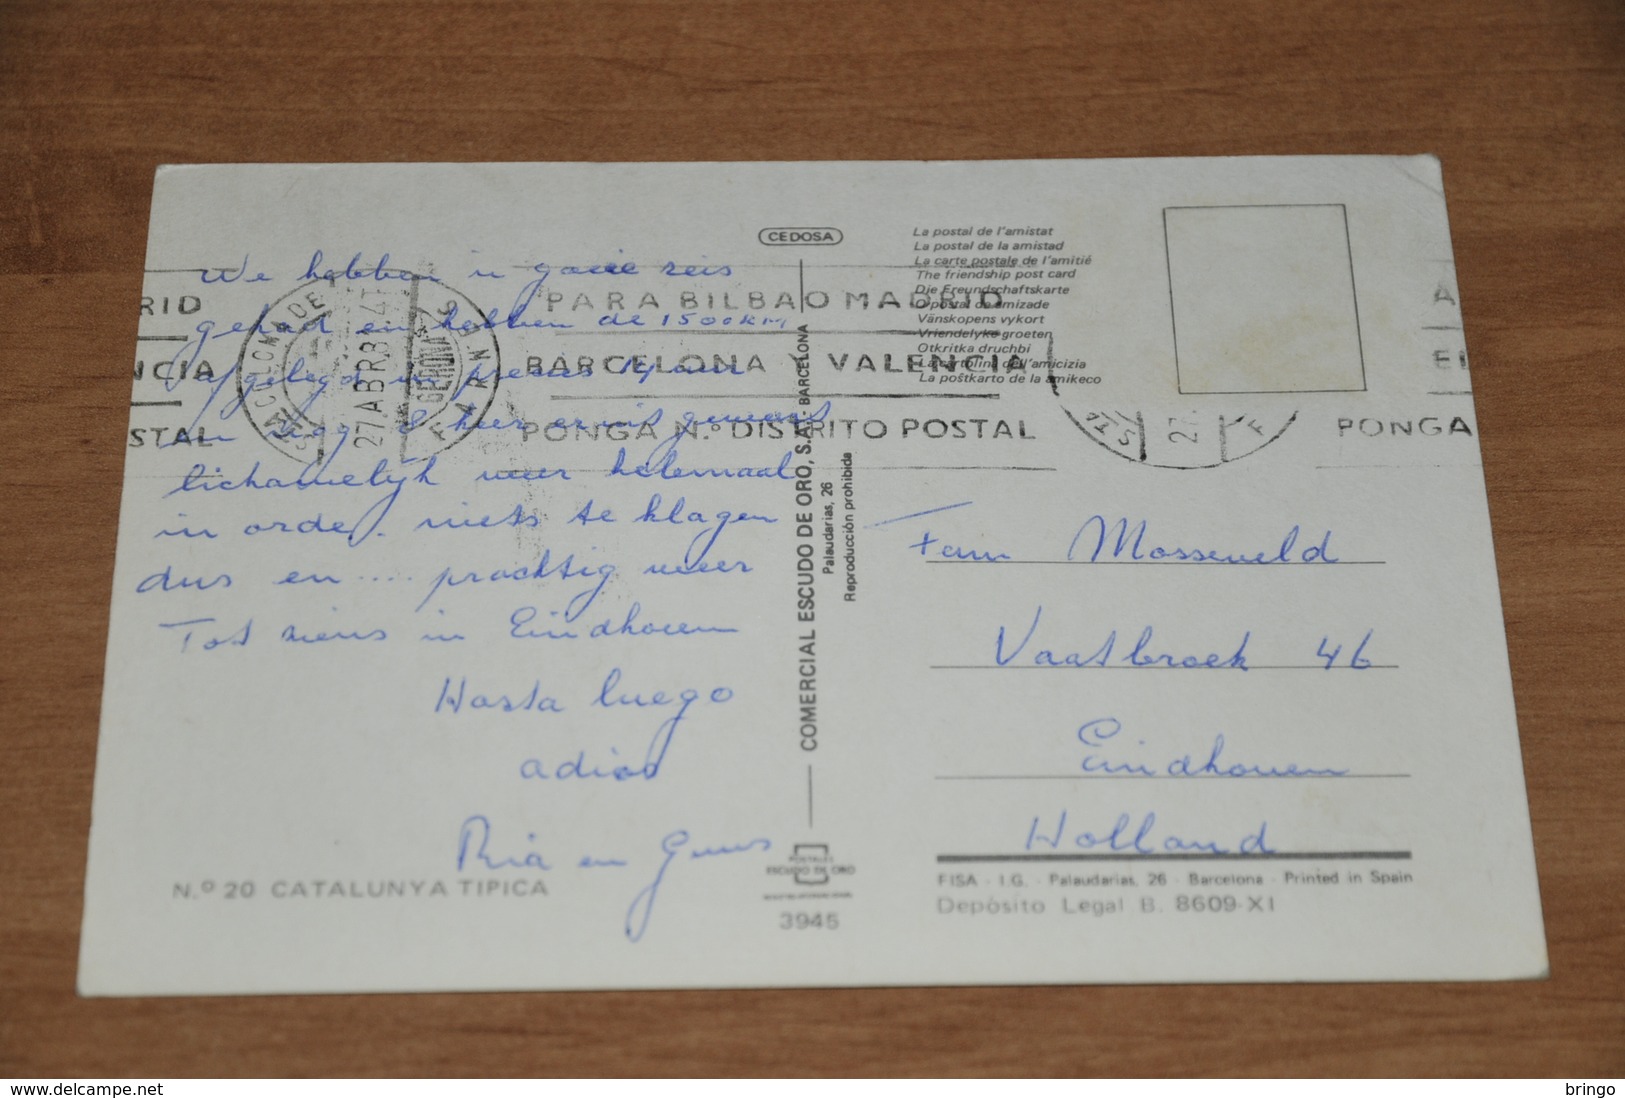 We hebben 'n goeie reis
gehad en hebben de 1500 KM
afgelegd in precies
en
lichamelijk weer helemaal
in orde. niets te klagen
dus en .... prachtig weer
Tot ziens in Eindhoven
Hasta luego
adios
Ria en Guus
N.º 20 CATALUNYA TIPICA
RID
NCIA
STAL
27 ABR 8
GERONA
PARA BILBAO MADRID
BARCELONA Y VALENCIA
PONGA N.º DISTRITO POSTAL
CEDOSA
COMERCIAL ESCUDO DE ORO, S.A. - BARCELONA
Palaudarias, 26
Reproducción prohibida
POSTALES
ESCUDO DE ORO
3945
La postal de l'amistat
La postal de la amistad
La carte postale de l'amitié
The friendship post card
Die Freundschaftskarte
O postal de amizade
Vänskopens vykort
Vriendelyke groeten
Otkritka druchbi
La cartolina dell'amicizia
La poŝtkarto de la amikeco
A
EL
27
PONGA
Fam Mosseveld
Vaatbroek 46
Eindhoven
Holland
FISA - I.G. - Palaudarias, 26 - Barcelona - Printed in Spain
Depósito Legal B. 8609-XI
www.delcampe.net
bringo